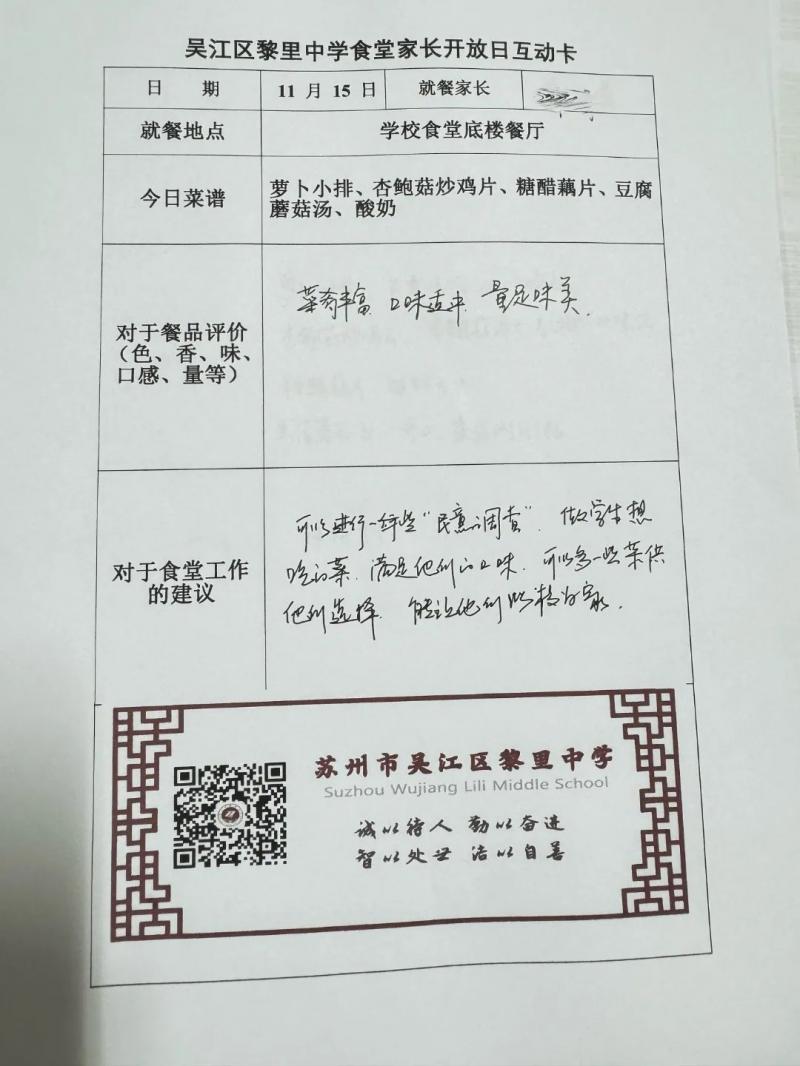 吴江区黎里中学食堂家长开放日互动卡
日 期 11 月 15 日 就餐家长
就餐地点 学校食堂底楼餐厅
今日菜谱
萝卜小排、杏鲍菇炒鸡片、糖醋藕片、豆腐
蘑菇汤、酸奶
对于餐品评价
（色、香、味、
口感、量等）
菜肴丰富 口味适中 量足味美.
对于食堂工作
的建议
可以进行一些"民意调查". 做学生想
吃的菜. 满足他们的口味. 可以多一些菜供
他们选择. 能让他们以校为家.
苏州市吴江区黎里中学
Suzhou Wujiang Lili Middle School
诚以待人 勤以奋进
智以处世 洁以自善